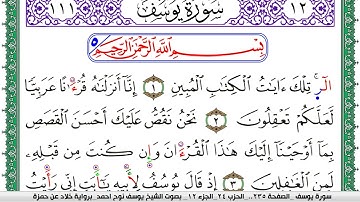 ١٢ سُورَةُ يُوسُفَ ١١١
بِسْمِ اللَّهِ الرَّحْمَٰنِ الرَّحِيمِ
الٓر تِلْكَ ءَايَٰتُ الْكِتَٰبِ الْمُبِينِ ١ إِنَّا أَنزَلْنَٰهُ قُرْءَٰنًا عَرَبِيًّا
لَّعَلَّكُمْ تَعْقِلُونَ ٢ نَحْنُ نَقُصُّ عَلَيْكَ أَحْسَنَ الْقَصَصِ
بِمَا أَوْحَيْنَا إِلَيْكَ هَٰذَا الْقُرْءَانَ وَإِن كُنتَ مِن قَبْلِهِ
لَمِنَ الْغَٰفِلِينَ ٣ إِذْ قَالَ يُوسُفُ لِأَبِيهِ يَٰأَبَتِ إِنِّي رَأَيْتُ
سورة يوسف _الصفحة ٢٣٥_ الحزب ٢٤_ الجزء ١٢ _ بصوت الشيخ يوسف نوح أحمد _برواية خلاد عن حمزة